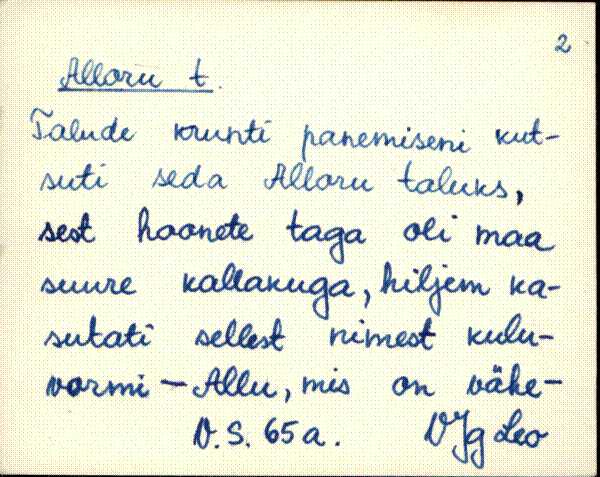 2
Alloru t.
Talude krunti panemiseni kut-
suti seda Alloru taluks,
sest hoonete taga oli maa
suure kallakuga, hiljem ka-
sutati sellest nimest kulu-
vormi - Allu, mis on vähe-
V. S. 65 a. VJg Leo